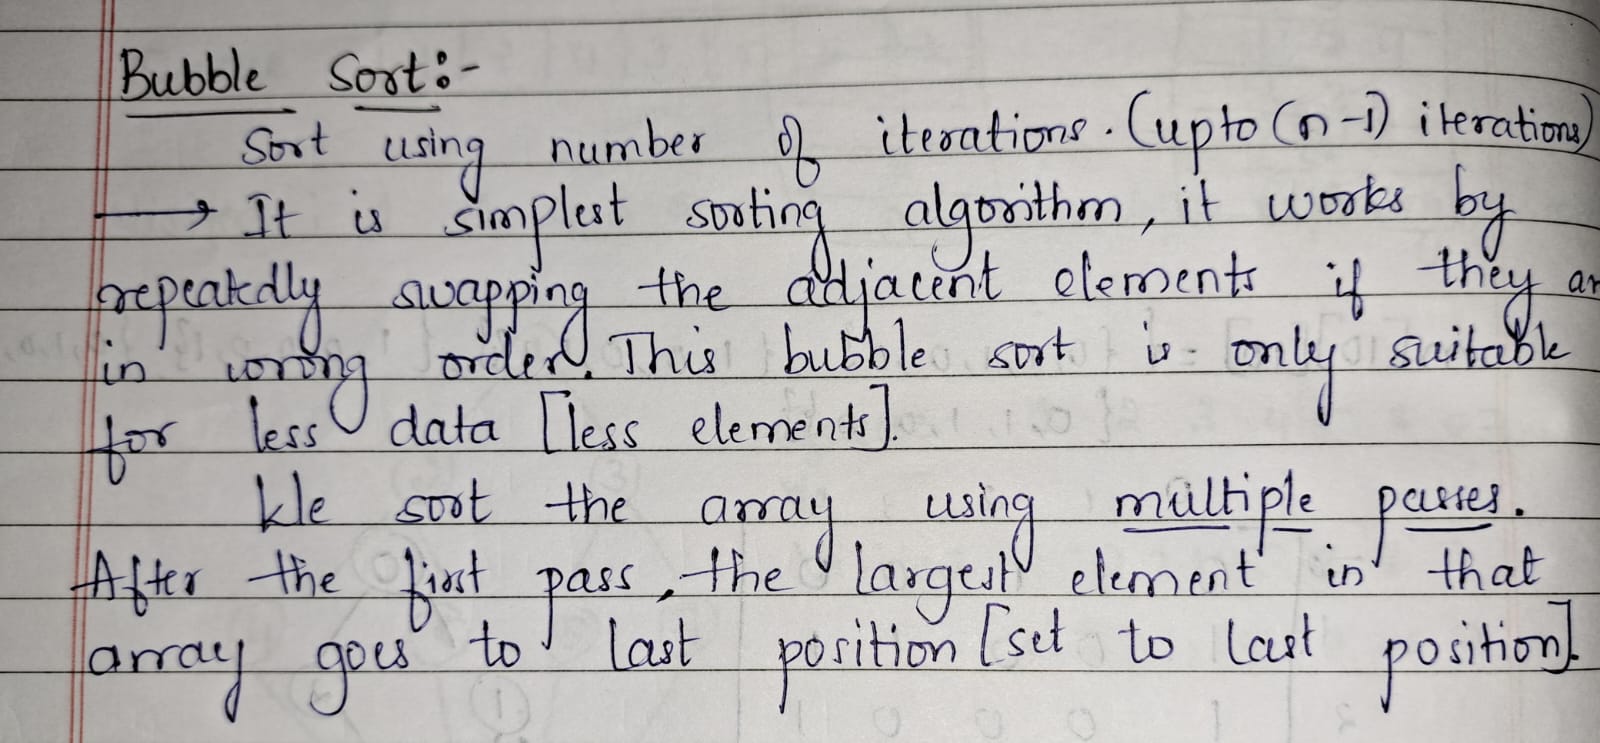 Bubble Sort:-
Sort using number of iterations. (upto (n-1) iterations)
→ It is simplest sorting algorithm, it works by
repeatedly swapping the adjacent elements if they ar
in wrong order. This bubble sort is only suitable
for less data [less elements].
We sort the array using multiple passes.
After the first pass, the largest element in that
array goes to last position [set to last position].